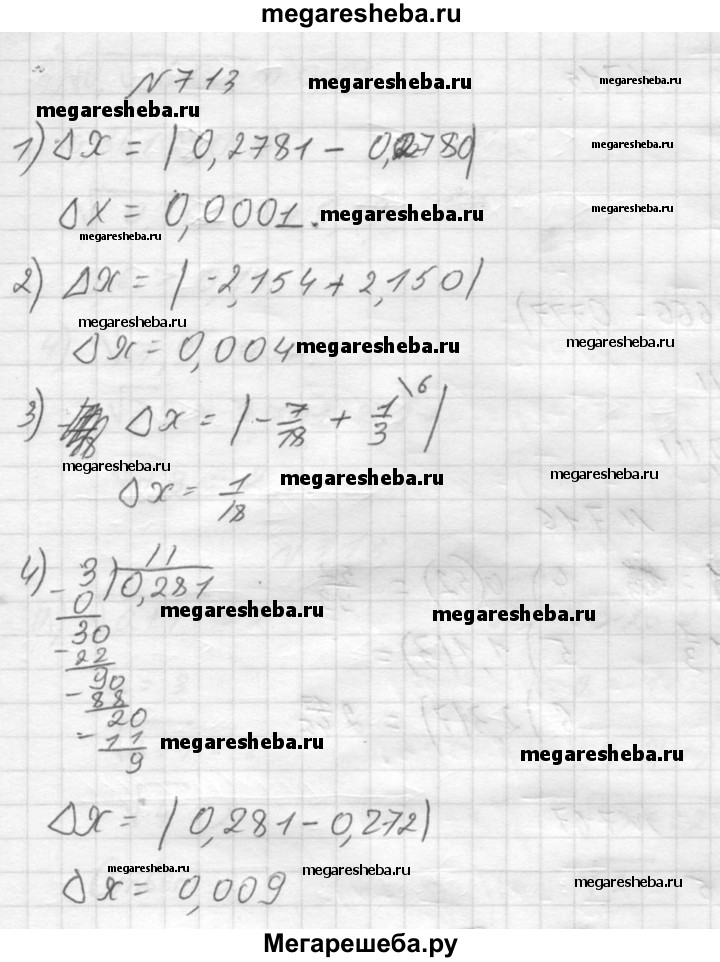 megaresheba.ru
N 713 megaresheba.ru
megaresheba.ru
1) Δx = | 0,2781 - 0,2780| megaresheba.ru
Δx = 0,0001. megaresheba.ru megaresheba.ru
megaresheba.ru
2) Δx = | -2,154 + 2,150|
megaresheba.ru
Δx = 0,004 megaresheba.ru megaresheba.ru
3) Δx = |-7/18 + 1/3 \6 |
megaresheba.ru megaresheba.ru
Δx = 1/18 megaresheba.ru
4) - 3 | 11
0 0,281 megaresheba.ru megaresheba.ru
30
- 22
90
- 88
20
- 11 megaresheba.ru
9 megaresheba.ru
Δx = | 0,281 - 0,272|
megaresheba.ru megaresheba.ru
Δx = 0,009 megaresheba.ru
Мегарешеба.ру